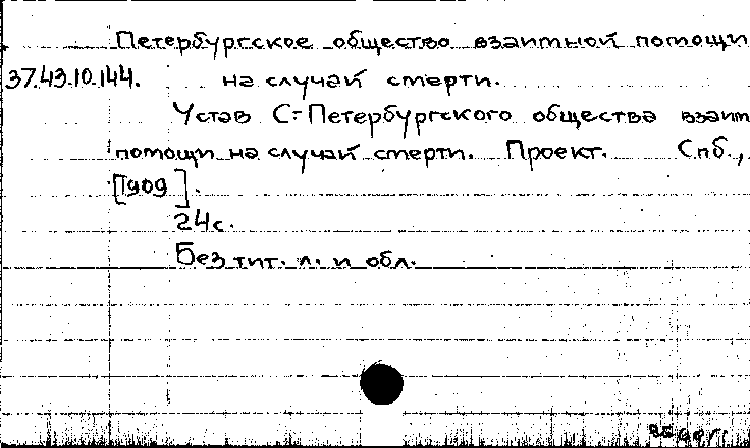 Петербургское общество взаимной помощи
37.43.10.144. на случай смерти.
Устав С=Петербургского общества взаим
помощи на случай смерти. Проект. Спб.,
[1909].
24с.
Без тит. л. и обл.